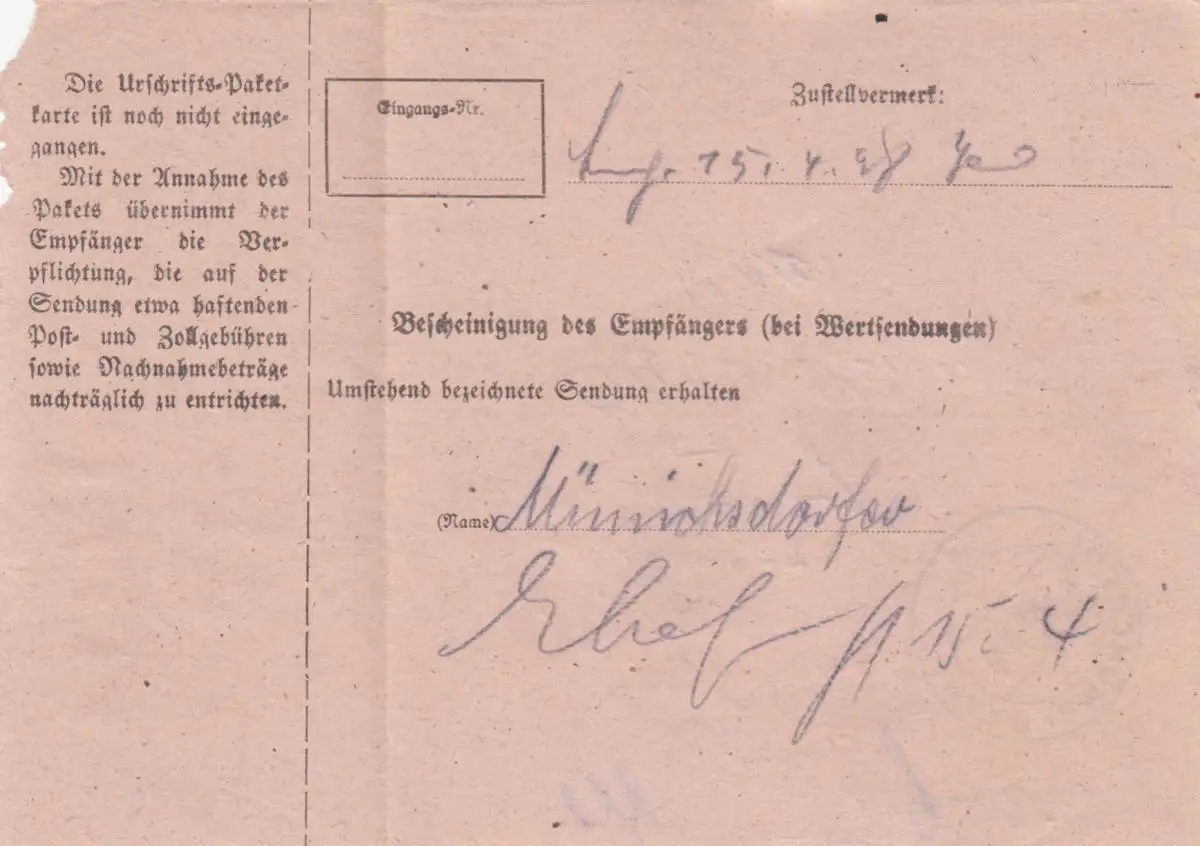 Die Urschrifts-Paket-
karte ist noch nicht einge-
gangen.
Mit der Annahme des
Pakets übernimmt der
Empfänger die Ver-
pflichtung, die auf der
Sendung etwa haftenden
Post- und Zollgebühren
sowie Nachnahmebeträge
nachträglich zu entrichten.
Eingangs-Nr.
Zustellvermerk:
15. 4.
Bescheinigung des Empfängers (bei Wertsendungen)
Umstehend bezeichnete Sendung erhalten
(Name) Münnichsdorfer
15. 4